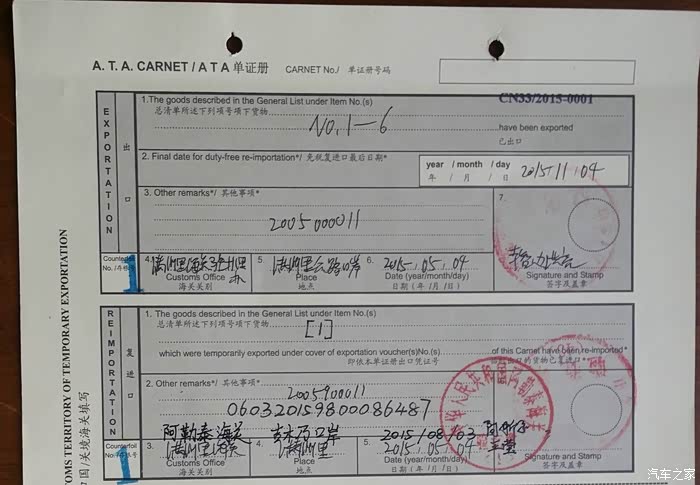 A.T.A. CARNET / ATA 单证册 CARNET No./ 单证册号码
CN33/2015-0001
EXPORTATION
出口
1.The goods described in the General List under Item No.(s)
总清单所述下列项号项下货物
No.1—6
have been exported
已出口
2. Final date for duty-free re-importation*/ 免税复进口最后日期*
year / month / day
年 / 月 / 日
2015.11.04
3. Other remarks*/ 其他事项*
2005000011
7.
Counterfoil No. /存根号
1
4. 满洲里海关
Customs Office
海关关别
5. 满洲里公路口岸
Place
地点
6. 2015.05.04
Date (year/month/day)
日期 (年/月/日)
Signature and Stamp
签字及盖章
REIMPORTATION
复进口
1. The goods described in the General List under Item No.(s)
总清单所述下列项号项下货物
[1]
which were temporarily exported under cover of exportation voucher(s)No.(s)
即依本单证册出口凭证号
of this Carnet have been re-imported*
出口的货物已复进口*
2. Other remarks*/ 其他事项*
2005900011
060320159800086487
阿勒泰海关 吉木乃口岸 2015/08/03
Counterfoil No. /存根号
1
3. 满洲里海关
Customs Office
海关关别
4. 满洲里
Place
地点
5. 2015.05.04
Date (year/month/day)
日期 (年/月/日)
Signature and Stamp
签字及盖章
TOMS TERRITORY OF TEMPORARY EXPORTATION
口国/关境海关填写
汽车之家